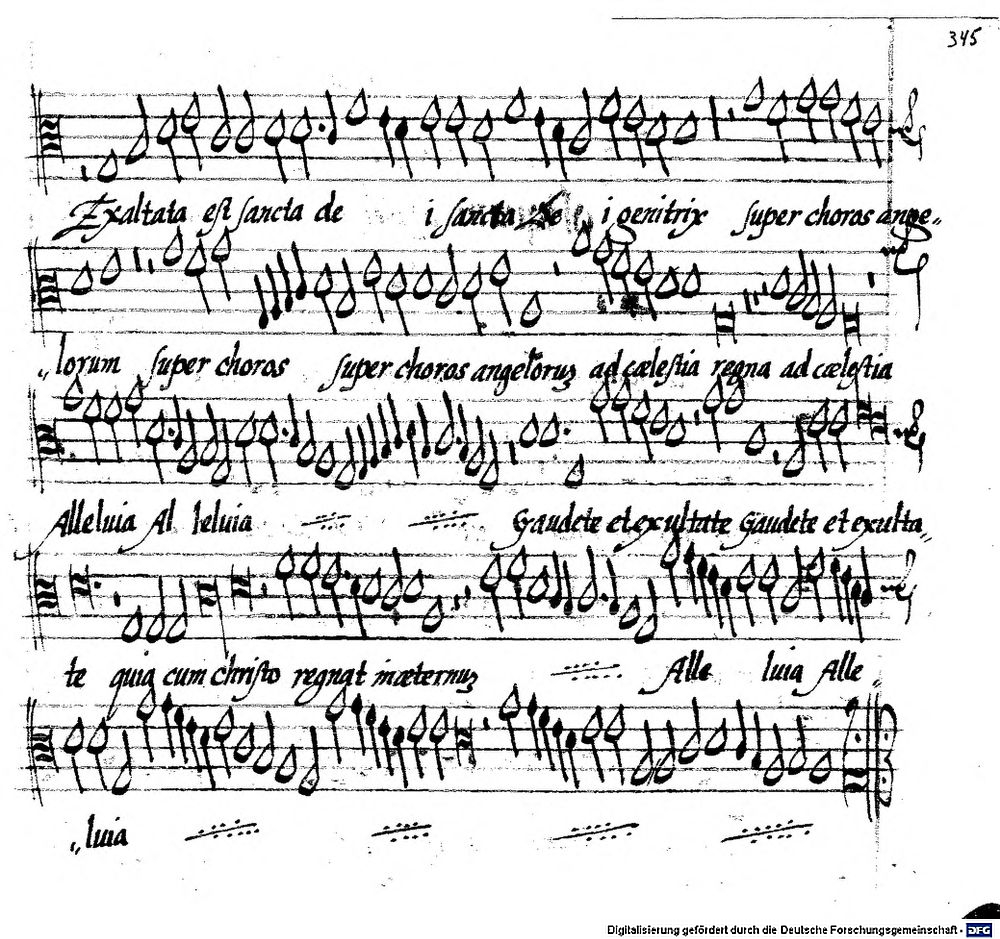 345
Exaltata est sancta de i sancta De i genitrix super choros ange„
„lorum super choros super choros angeloruꝫ ad cælestia regna ad cælestia
Alleluia Al leluia Gaudete et exultate Gaudete et exulta„
te quia cum christo regnat inæternuꝫ Alle luia Alle„
„luia
Digitalisierung gefördert durch die Deutsche Forschungsgemeinschaft - DFG